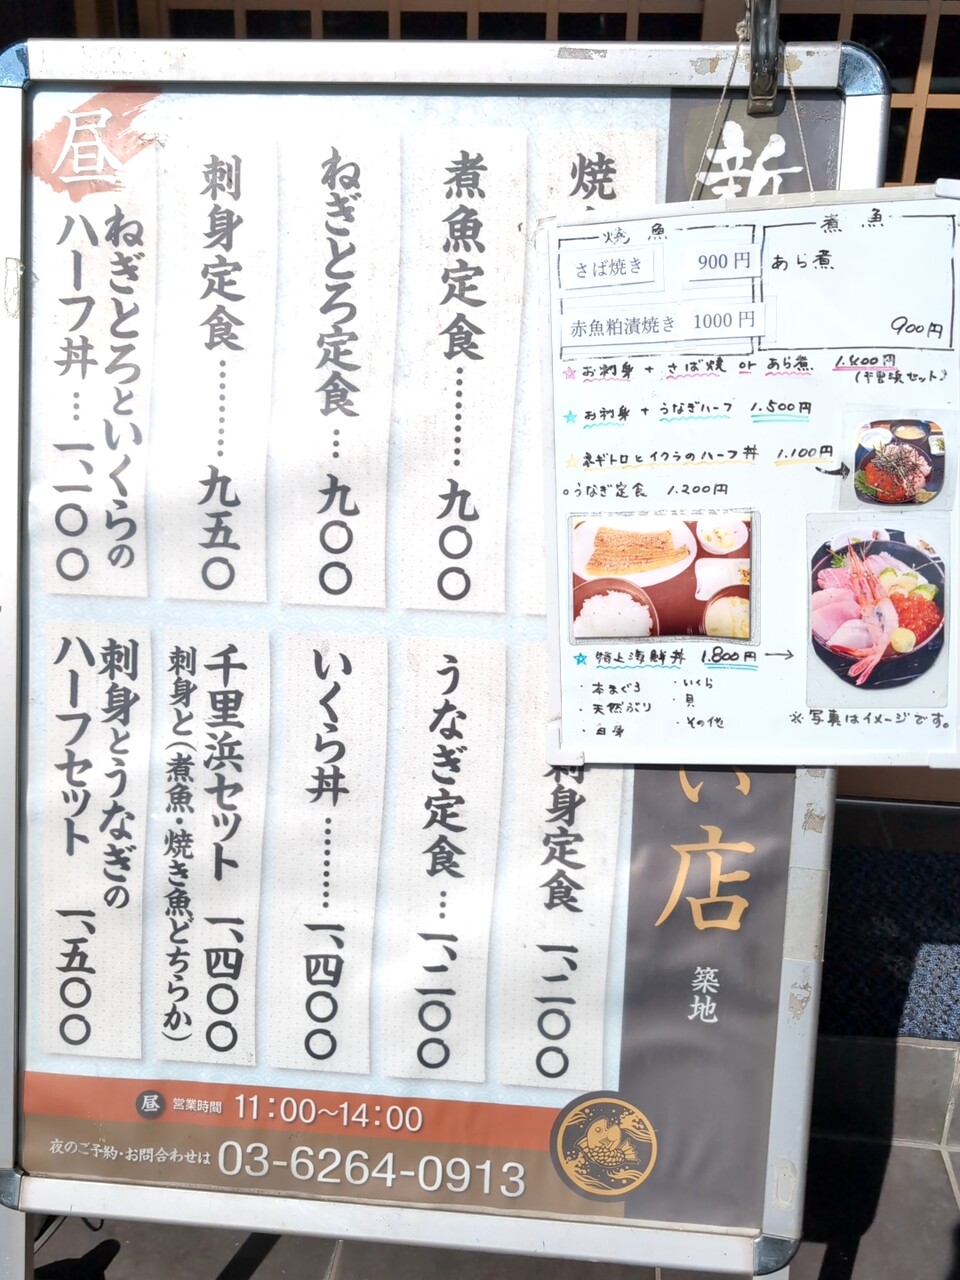 新
い店
築地
昼
焼
煮魚定食………九〇〇
ねぎとろ定食…九〇〇
刺身定食………九五〇
ねぎとろといくらの
ハーフ丼…一、一〇〇
刺身定食 一、二〇〇
うなぎ定食…一、二〇〇
いくら丼………一、四〇〇
千里浜セット 一、四〇〇
刺身と(煮魚・焼き魚どちらか)
刺身とうなぎの
ハーフセット 一、五〇〇
昼 営業時間 11:00〜14:00
夜のご予約・お問合わせは 03-6264-0913
焼魚
さば焼き 900円
赤魚粕漬焼き 1000円
煮魚
あら煮
900円
☆お刺身 + さば焼 or あら煮 1.400円
(千里浜セット)
☆お刺身 + うなぎハーフ 1.500円
☆ネギトロとイクラのハーフ丼 1.100円
○うなぎ定食 1.200円
☆特上海鮮丼 1.800円 →
・本まぐろ
・天然ぶり
・白身
・いくら
・貝
・その他
※写真はイメージです。